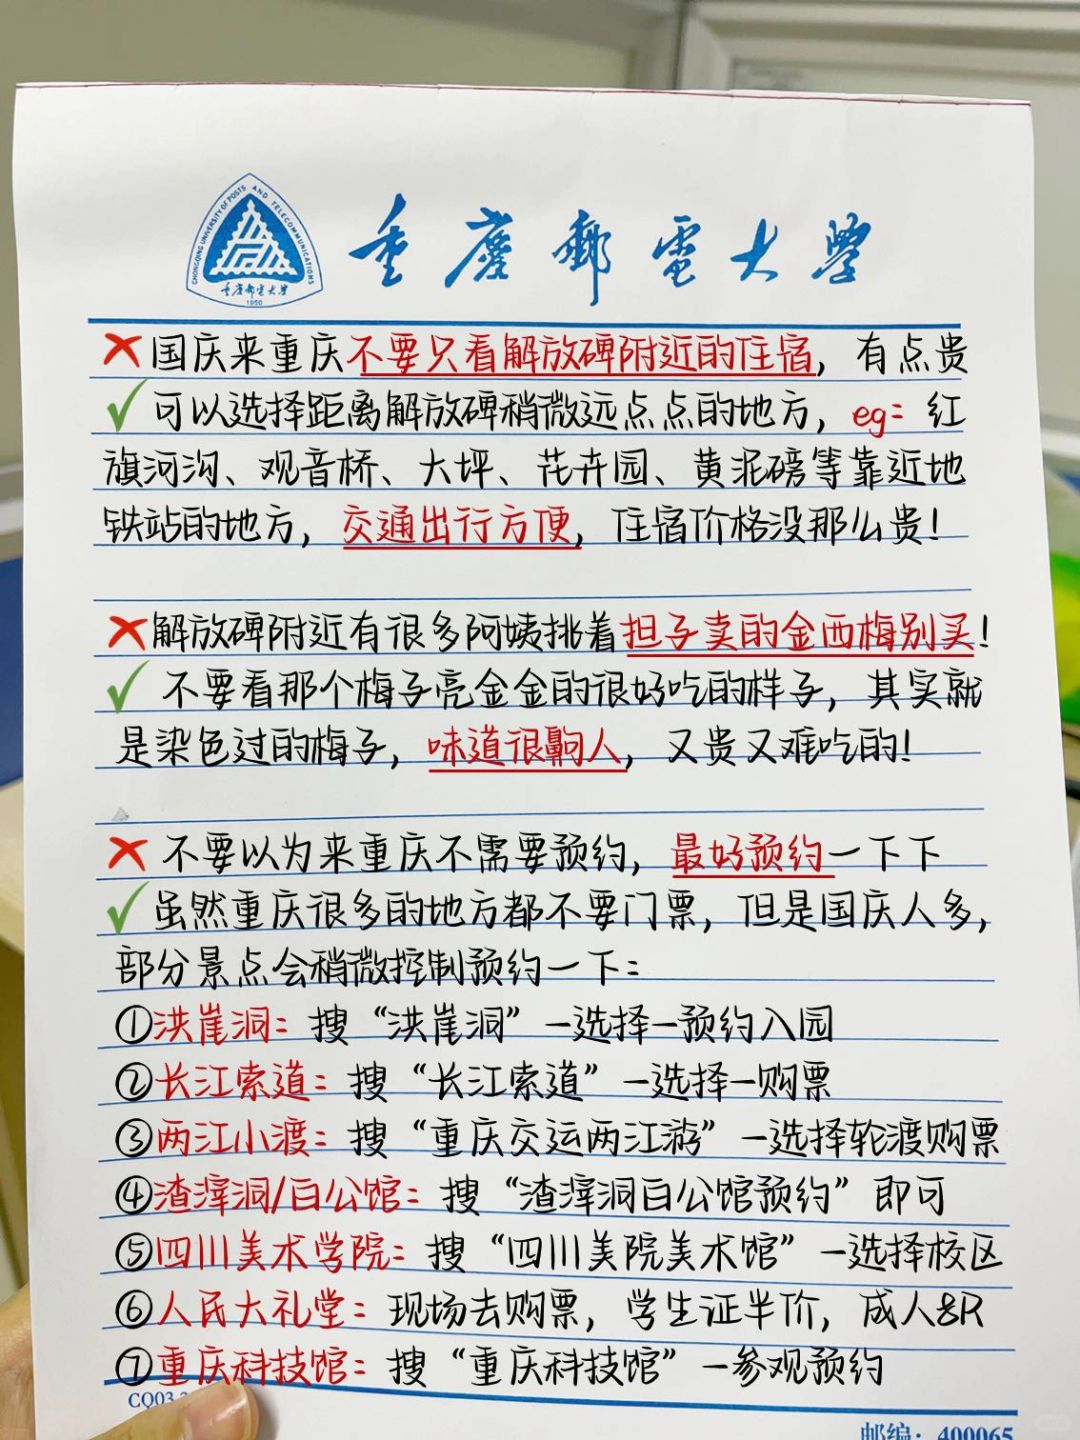 CHONGQING UNIVERSITY OF POSTS AND TELECOMMUNICATIONS
重庆邮电大学
1950
重慶郵電大學
❌国庆来重庆不要只看解放碑附近的住宿，有点贵
✓可以选择距离解放碑稍微远点点的地方，eg：红
旗河沟、观音桥、大坪、花卉园、黄泥磅等靠近地
铁站的地方，交通出行方便，住宿价格没那么贵！
❌解放碑附近有很多阿姨挑着担子卖的金西梅别买！
✓不要看那个梅子亮金金的很好吃的样子，其实就
是染色过的梅子，味道很齁人，又贵又难吃的！
❌不要以为来重庆不需要预约，最好预约一下下
✓虽然重庆很多的地方都不要门票，但是国庆人多，
部分景点会稍微控制预约一下：
①洪崖洞：搜“洪崖洞”—选择—预约入园
②长江索道：搜“长江索道”—选择—购票
③两江小渡：搜“重庆交运两江游”—选择轮渡购票
④渣滓洞/白公馆：搜“渣滓洞白公馆预约”即可
⑤四川美术学院：搜“四川美院美术馆”—选择校区
⑥人民大礼堂：现场去购票，学生证半价，成人8R
⑦重庆科技馆：搜“重庆科技馆”—参观预约
CQ03
邮编：400065